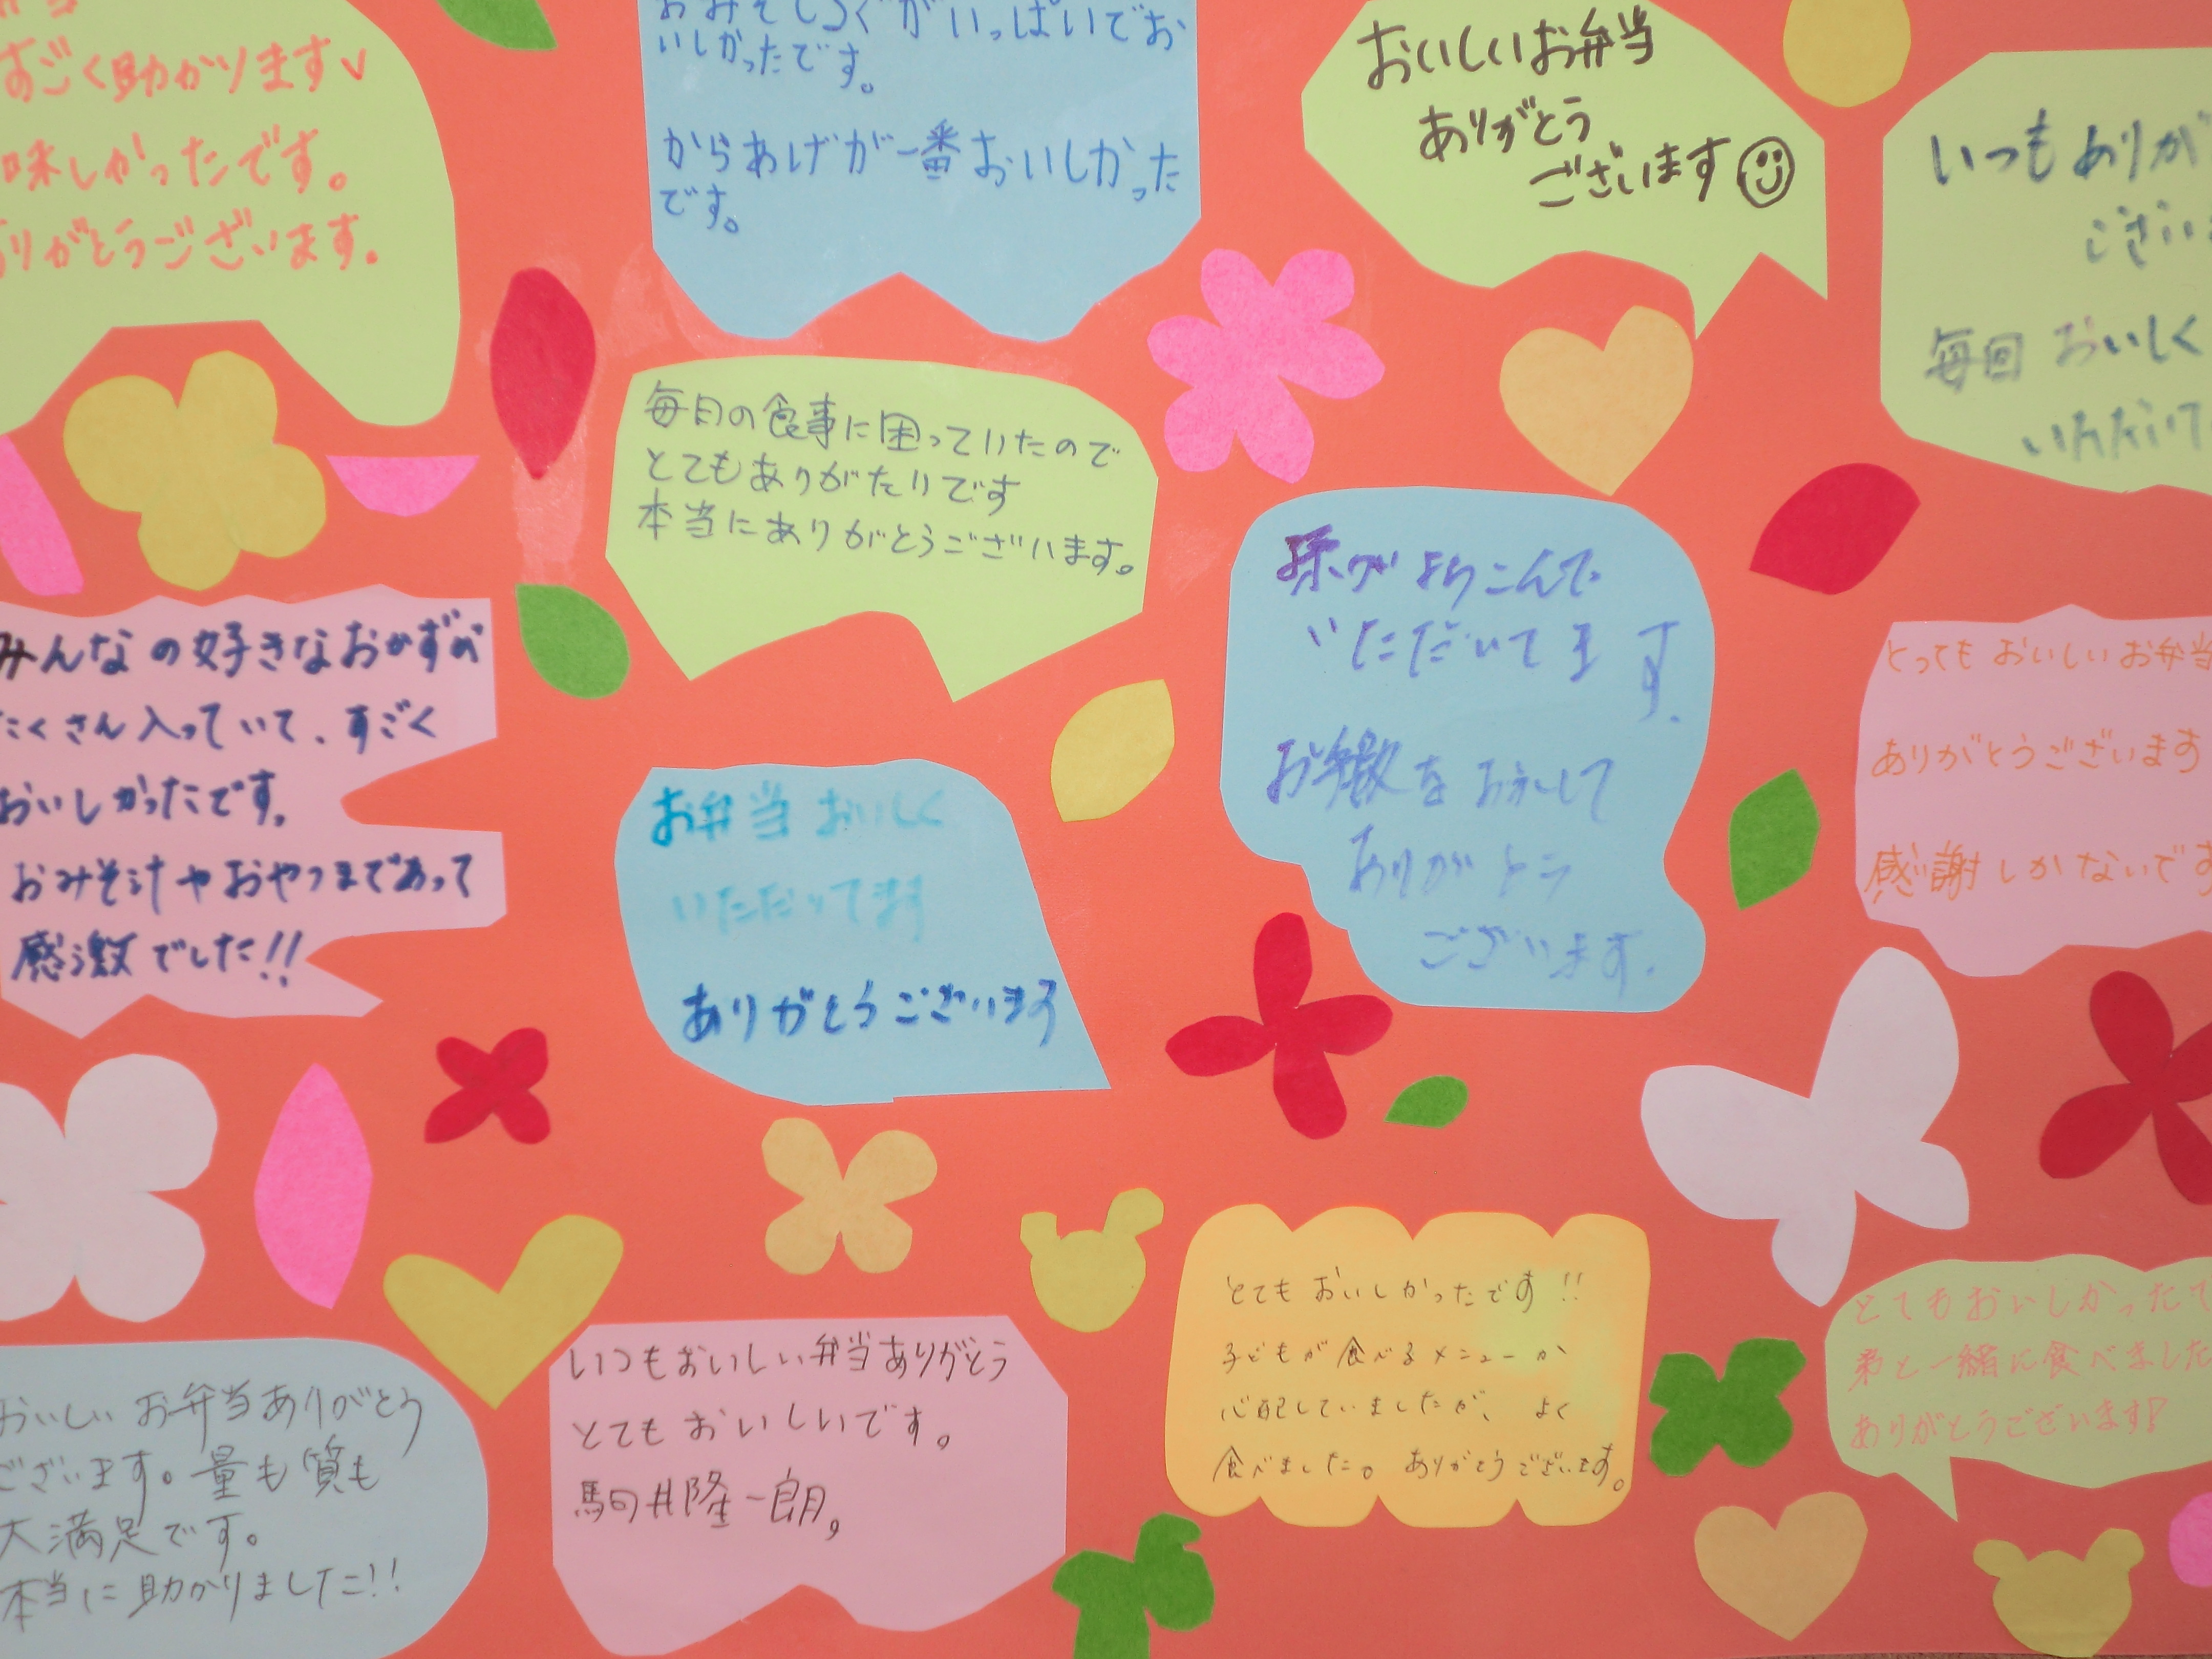 すごく助かります
味しかったです。
ありがとうございます。
いしかったです。
からあげが一番おいしかった
です。
おいしいお弁当
ありがとう
ございます
いつもありが
ござい
毎回 おいしく
いただいて
毎日の食事に困っていたので
とてもありがたいです
本当にありがとうございます。
孫がよろこんで
いただいてます。
お手数をおかけして
ありがとう
ございます。
みんなの好きなおかずが
たくさん入っていて、すごく
おいしかったです。
おみそ汁やおやつまであって
感激でした!!
お弁当おいしく
いただいてます
ありがとうございます
とってもおいしいお弁当
ありがとうございます
感謝しかないです
おいしいお弁当ありがとう
ございます。量も質も
大満足です。
本当に助かりました!!
いつもおいしい弁当ありがとう
とてもおいしいです。
駒井隆一朗。
とてもおいしかったです!!
子どもが食べるメニューか
心配していましたが、よく
食べました。ありがとうございます。
とてもおいしかったで
弟と一緒に食べました
ありがとうございます!